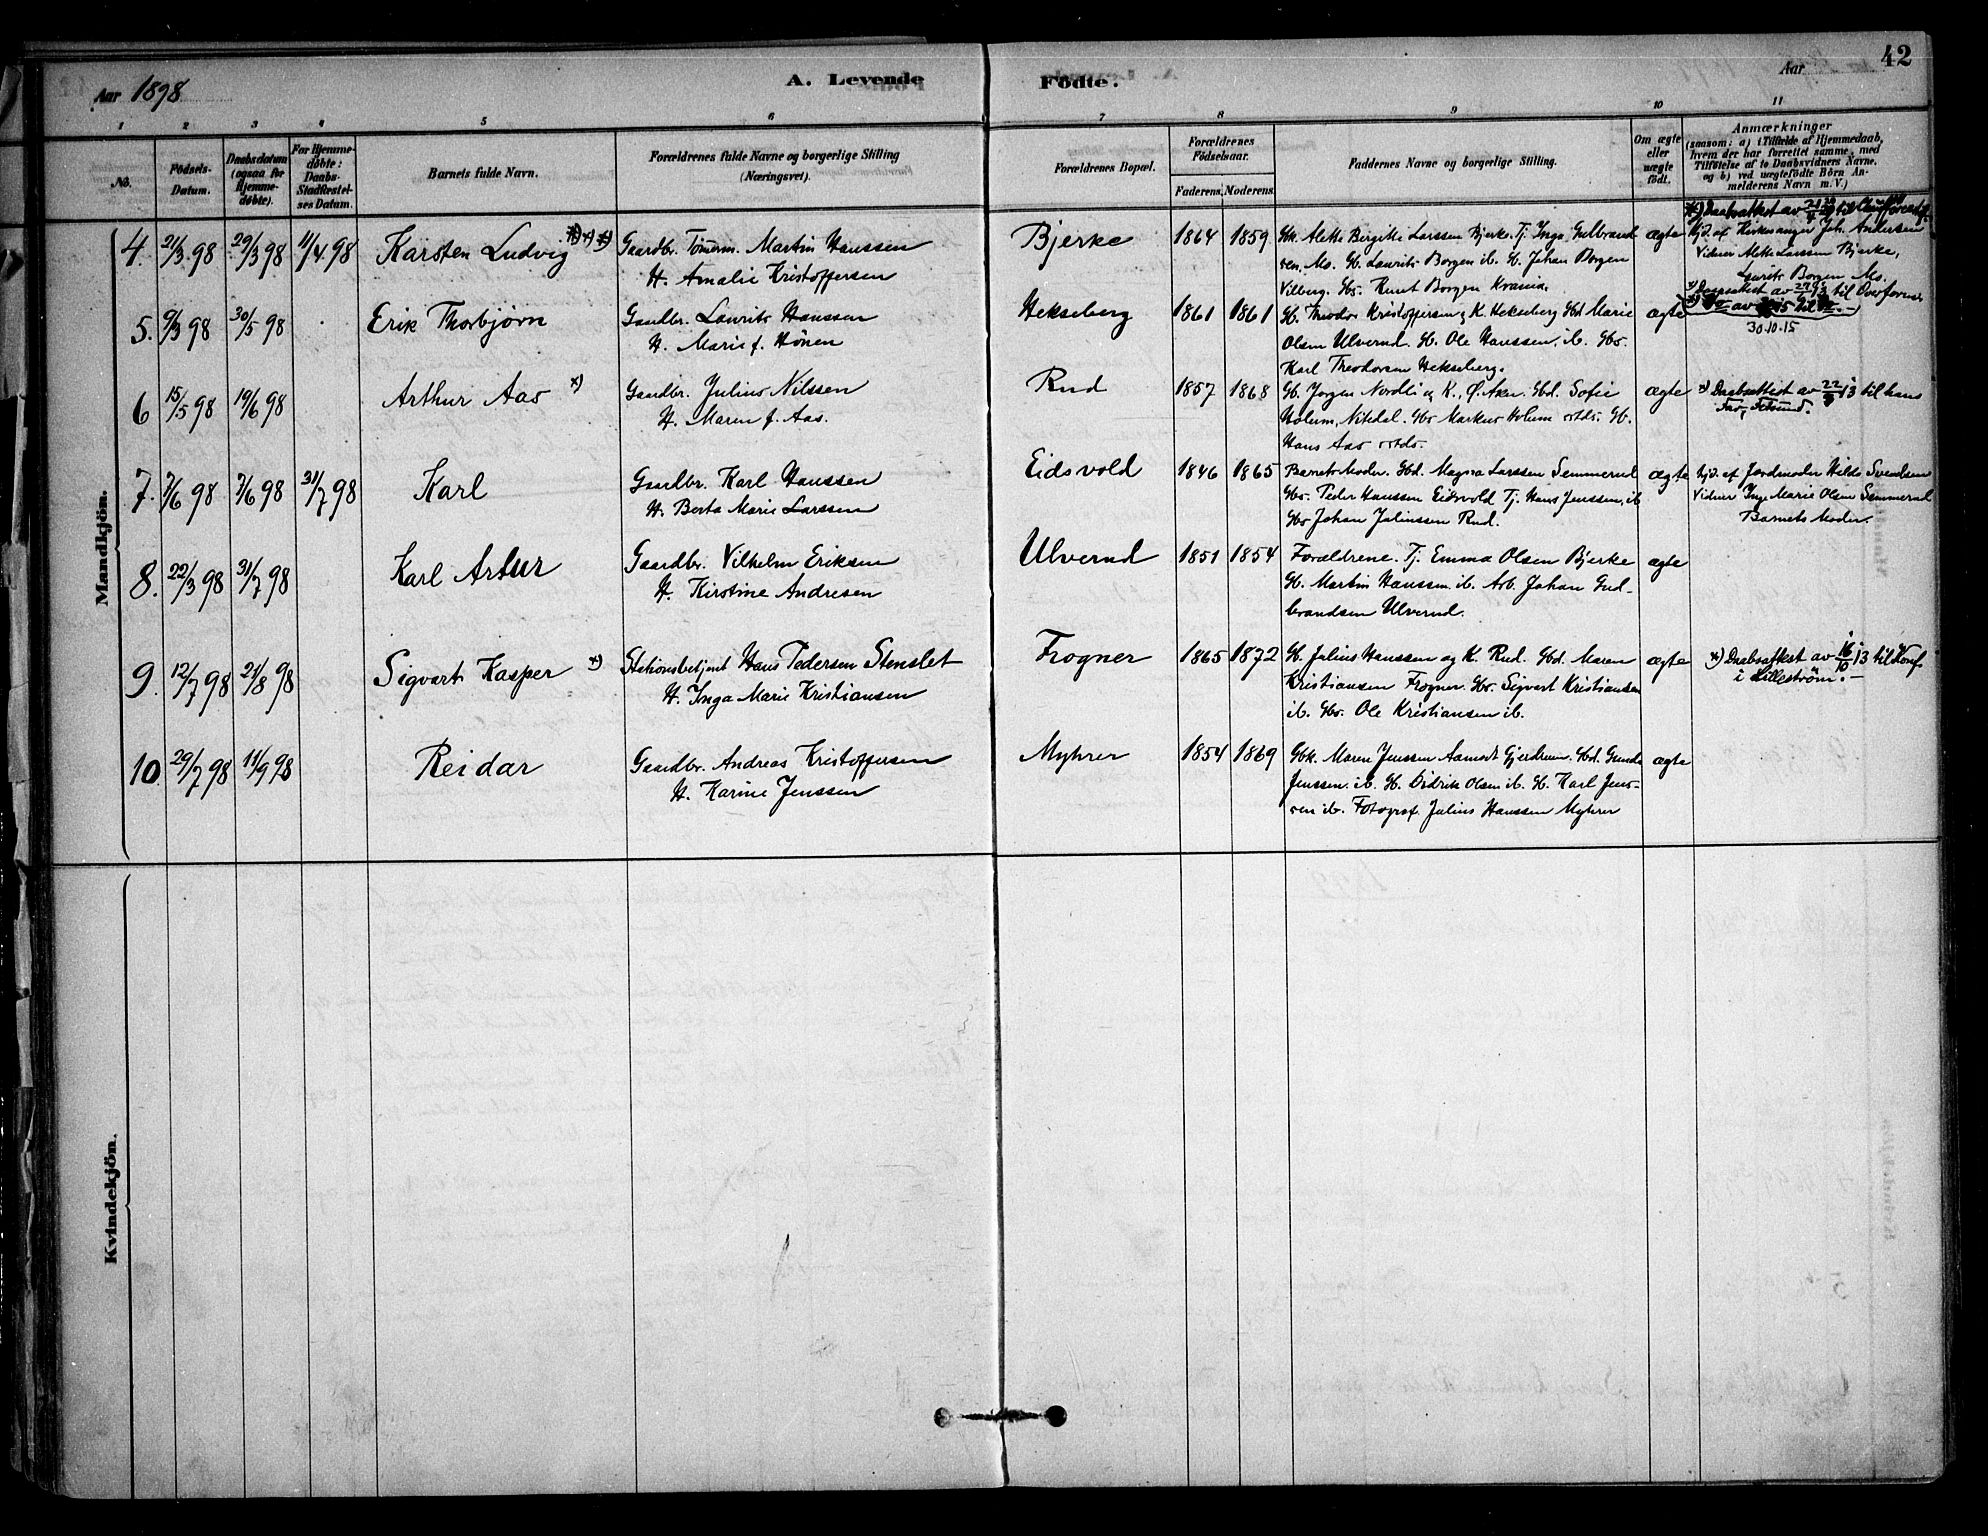 42
Aar 1898
A. Levende
Födte.
Aar
1 2 3 4 5 6 7 8 9 10 11
No.
Födsels-
Datum.
Daabsdatum
(ogsaa for
Hjemme-
døbte).
For Hjemme-
døbte:
Daabs-
Stadfæstel-
ses Datum.
Barnets fulde Navn.
Forældrenes fulde Navne og borgerlige Stilling
(Næringsvei).
Forældrenes Bopæl.
Forældrenes
Födselsaar.
Faderens. Moderens.
Faddernes Navne og borgerlige Stilling.
Om ægte
eller
uægte
født.
Anmærkninger
(saasom: a) i Tilfælde af Hjemmedaab,
hvem der har forrettet samme, med
Tilföielse af to Daabsvidners Navne,
og b) ved uægtefödte Börn An-
melderens Navn m. V.)
Mandkjön.
4 21/3 98 29/3 98 11/4 98 Karsten Ludvig *) *) *)
Gaardbr. Tömerm. Martin Hanssen
H. Amalie Kristoffersen
Bjerke 1864 1859
Gbk. Alette Birgitte Larssen Bjerke. Tj. Inga Gulbrand
sen, Mo. Gb. Laurits Borgen ib. G. Johan Borgen
Vilberg. Gbs. Knut Borgen Krania.
ægte
*) Daabsattest av til
Hjd. af Kirkesanger Joh. Andersen
Vidner Alette Larssen Bjerke,
Laurits Borgen Mo.
*) Daabsattest av til
av til
30.10.15
5. 9/3 98 30/5 98 Erik Thorbjørn
Gaardbr. Laurits Hanssen
H. Marie f. Hönen
Hekseberg 1861 1861
Gb. Theodor Kristoffersen og K. Hekseberg Gbd. Marie
Olsen Ulverud. Gb. Ole Hanssen, ib. Gbs.
Karl Theodorsen Hekseberg.
ægte
6 15/5 98 19/6 98 Arthur Aas *)
Gaardbr. Julius Nilssen
H. Maren f. Aas.
Rud 1857 1868
Gb. Jørgen Nordli og K., Ø. Aker. Gbd. Sofie
Holum, Nitedal. Gbs Markus Holum sstds. Gb.
Hans Aas sstds.
ægte
*) Daabsattest av 22/9 13 til hans
Far, Fetsund.
7. 7/6 98 7/6 98 31/7 98 Karl
Gaardbr. Karl Hanssen
H. Berta Marie Larssen
Eidsvold 1846 1865
Barnets Moder. Gbd. Magna Larssen Semmerud
Gbs. Peder Hanssen Eidsvold Tj. Hans Jenssen, ib
Gbs Johan Juliussen Rud.
ægte
Hjd. af Jordmoder Hilda Svendsen
Vidner Inge Marie Olsen Semmerud
Barnets Moder.
8. 22/3 98 31/7 98 Karl Artur
Gaardbr. Vilhelm Eriksen
H. Kirstine Andresen
Ulverud 1851 1854
Forældrene. Tj. Emma Olsen Bjerke
Gb. Martin Hanssen ib. Arb. Johan Gud-
brandsen Ulverud.
ægte
9. 12/7 98 21/8 98 Sigvart Kasper *)
Stationsbetjent Hans Pedersen Stenslet
H. Inga Marie Kristiansen
Frogner 1865 1872
Gb. Julius Hanssen og K. Rud. Gbd. Maren
Kristiansen Frogner. Gbs. Sigvart Kristiansen
ib. Gbs. Ole Kristiansen ib.
ægte
*) Daabsattest av 16/10 13 til Konf.
i Lilleström. –
10 29/7 98 11/9 98 Reidar
Gaardbr. Andreas Kristoffersen
H. Karine Jenssen
Myhrer 1854 1869
Gbk. Maren Jenssen Aamodt Gjerdrum. Gbd. Gunda
Jenssen ib. G. Didrik Olsen ib. G. Karl Jens-
sen ib. Fotograf. Julius Hanssen Myhrer
ægte
Kvindekjön.